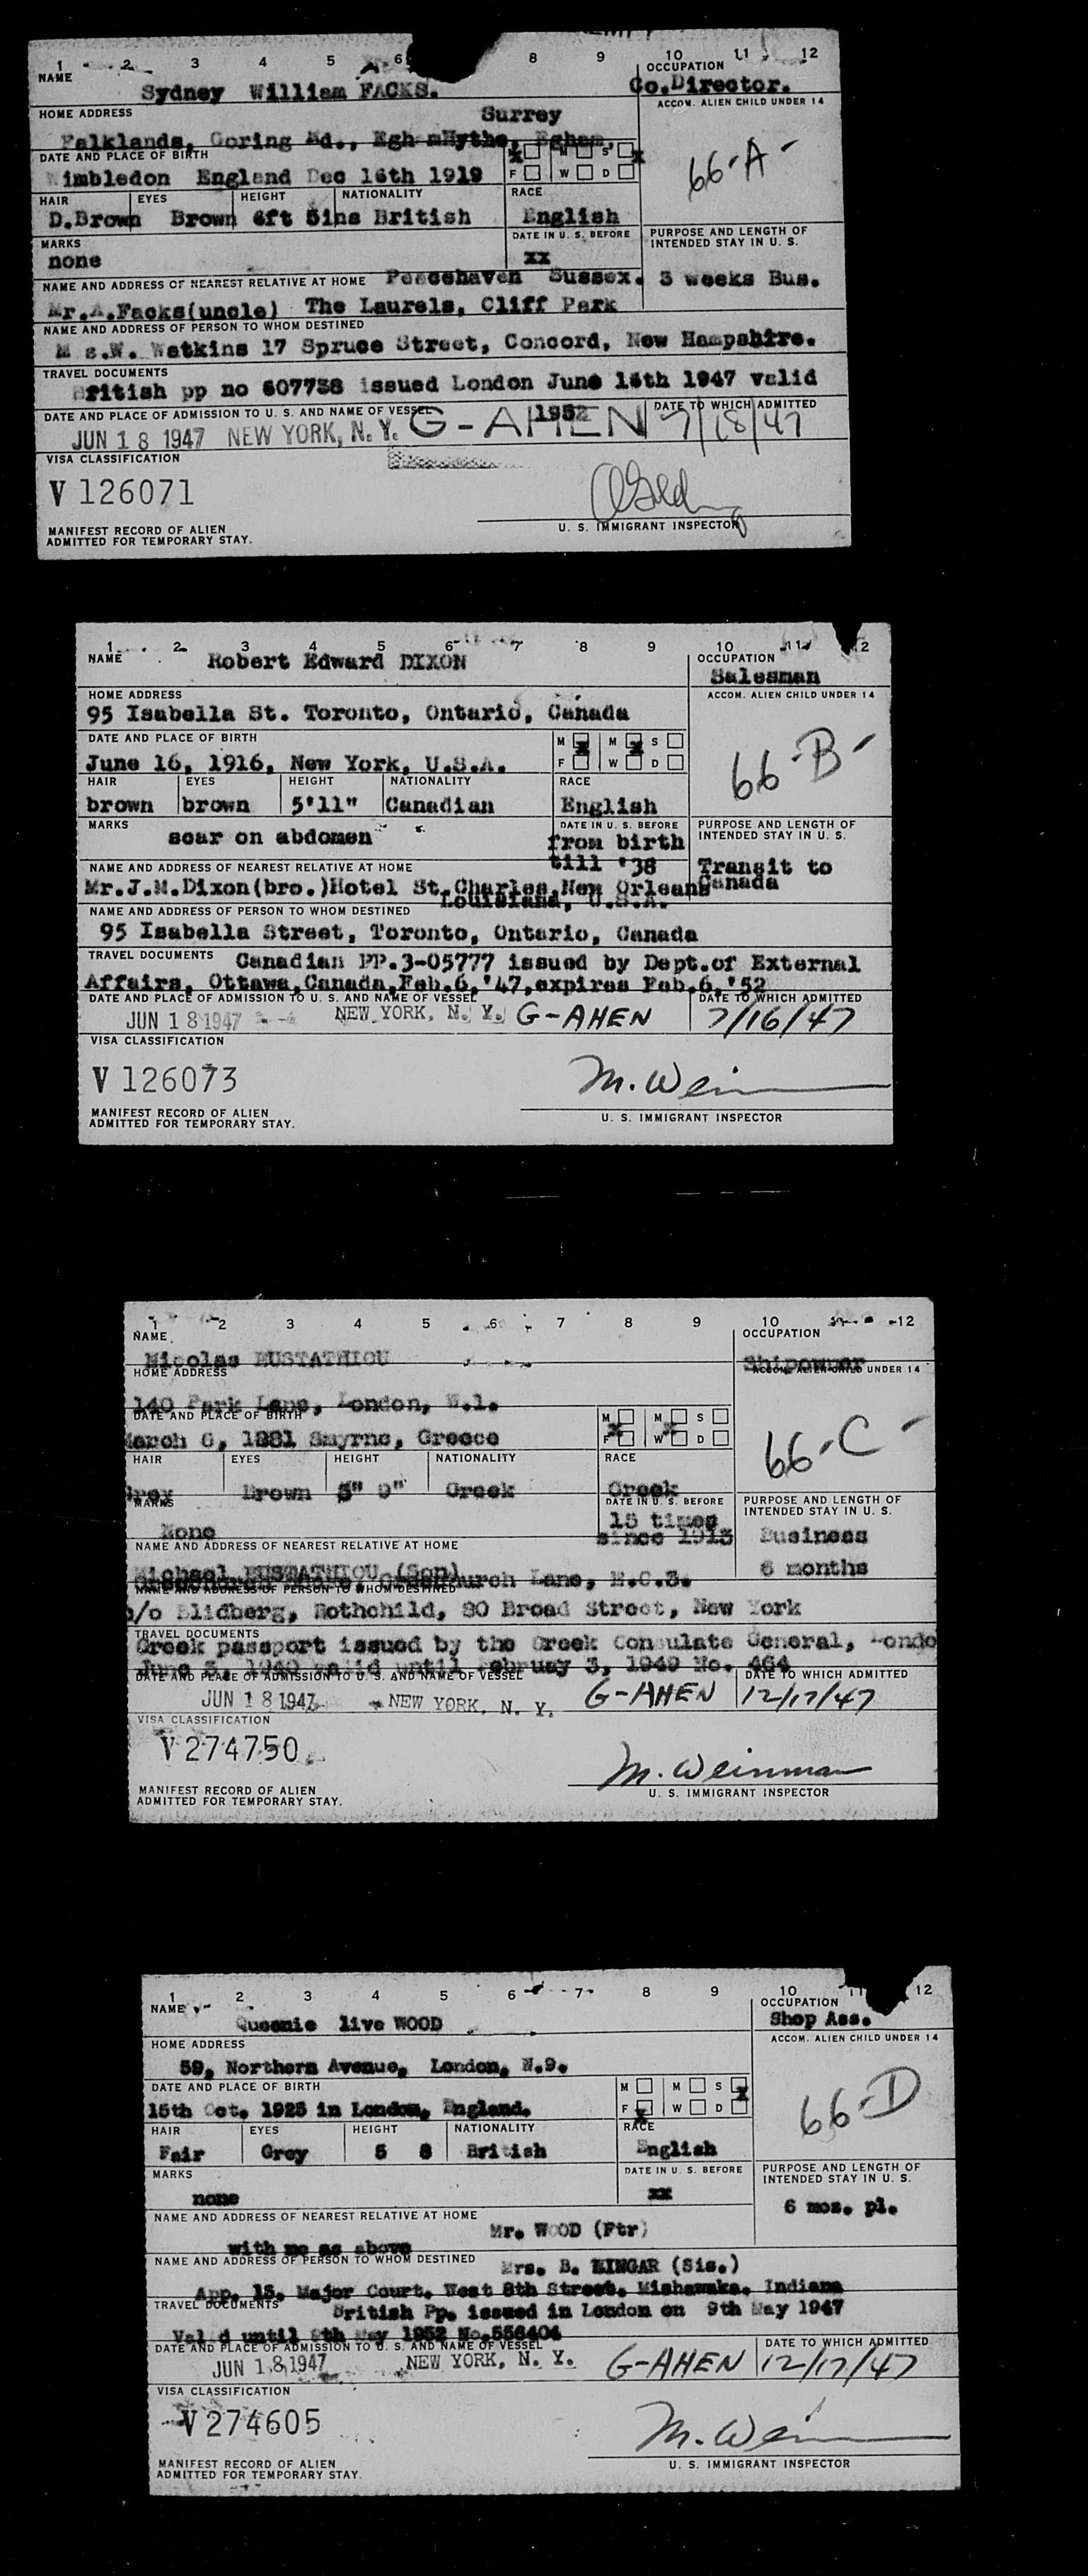 1 2 3 4 5 6 8 9 10 11 12
NAME
OCCUPATION
Sydney William FACKS.
Co.Director.
HOME ADDRESS
Surrey
ACCOM. ALIEN CHILD UNDER 14
Falklands, Goring Rd., Egham Hythe, Egham,
66-A-
DATE AND PLACE OF BIRTH
M S
Wimbledon England Dec 16th 1919
F W D
HAIR EYES HEIGHT NATIONALITY RACE
D.Brown Brown 6ft 5ins British English
MARKS
DATE IN U. S. BEFORE
PURPOSE AND LENGTH OF INTENDED STAY IN U. S.
none
xx
NAME AND ADDRESS OF NEAREST RELATIVE AT HOME Peacehaven Sussex.
3 weeks Bus.
Mr.A.Facks(uncle) The Laurels, Cliff Park
NAME AND ADDRESS OF PERSON TO WHOM DESTINED
M s.W. Watkins 17 Spruce Street, Concord, New Hampshire.
TRAVEL DOCUMENTS
British pp no 607738 issued London June 16th 1947 valid
1952
DATE AND PLACE OF ADMISSION TO U. S. AND NAME OF VESSEL
DATE TO WHICH ADMITTED
JUN 18 1947 NEW YORK, N. Y. G-AHEN 7/18/47
VISA CLASSIFICATION
V 126071
U. S. IMMIGRANT INSPECTOR
MANIFEST RECORD OF ALIEN
ADMITTED FOR TEMPORARY STAY.
1 2 3 4 5 6 7 8 9 10 11 12
NAME
OCCUPATION
Robert Edward DIXON
Salesman
HOME ADDRESS
ACCOM. ALIEN CHILD UNDER 14
95 Isabella St. Toronto, Ontario, Canada
66-B-
DATE AND PLACE OF BIRTH
M M S
June 16, 1916, New York, U.S.A.
F W D
HAIR EYES HEIGHT NATIONALITY RACE
brown brown 5'11" Canadian English
MARKS
DATE IN U. S. BEFORE
PURPOSE AND LENGTH OF INTENDED STAY IN U. S.
scar on abdomen
from birth
till '38
NAME AND ADDRESS OF NEAREST RELATIVE AT HOME
Transit to
Canada
Mr.J.M.Dixon(bro.)Hotel St.Charles,New Orleans
Louisiana, U.S.A.
NAME AND ADDRESS OF PERSON TO WHOM DESTINED
95 Isabella Street, Toronto, Ontario, Canada
TRAVEL DOCUMENTS
Canadian PP.3-05777 issued by Dept.of External
Affairs, Ottawa,Canada,Feb.6,'47,expires Feb.6,'52
DATE AND PLACE OF ADMISSION TO U. S. AND NAME OF VESSEL
DATE TO WHICH ADMITTED
JUN 18 1947 NEW YORK, N. Y. G-AHEN 7/16/47
VISA CLASSIFICATION
V 126073
M. Wein
MANIFEST RECORD OF ALIEN
ADMITTED FOR TEMPORARY STAY.
U. S. IMMIGRANT INSPECTOR
1 2 3 4 5 6 7 8 9 10 12
NAME
OCCUPATION
Nicolas EUSTATHIOU
Shipowner
HOME ADDRESS
ACCOM. ALIEN CHILD UNDER 14
140 Park Lane, London, W.1.
66-C-
DATE AND PLACE OF BIRTH
M M S
March 6, 1881 Smyrne, Greece
F W D
HAIR EYES HEIGHT NATIONALITY RACE
Grey Brown 5" 9" Greek Greek
MARKS
DATE IN U. S. BEFORE
PURPOSE AND LENGTH OF INTENDED STAY IN U. S.
None
15 times
since 1913
Business
6 months
NAME AND ADDRESS OF NEAREST RELATIVE AT HOME
Michael EUSTATHIOU (Son)
church Lane, E.C.3.
NAME AND ADDRESS OF PERSON TO WHOM DESTINED
c/o Blidberg, Rothchild, 80 Broad Street, New York
TRAVEL DOCUMENTS
Greek passport issued by the Greek Consulate General, Londo
valid until February 3, 1949 No. 464
DATE AND PLACE OF ADMISSION TO U. S. AND NAME OF VESSEL
DATE TO WHICH ADMITTED
JUN 18 1947 NEW YORK, N. Y. G-AHEN 12/17/47
VISA CLASSIFICATION
V 274750
M. Weinman
MANIFEST RECORD OF ALIEN
ADMITTED FOR TEMPORARY STAY.
U. S. IMMIGRANT INSPECTOR
1 2 3 4 5 6 7 8 9 10 11 12
NAME
OCCUPATION
Queenie live WOOD
Shop Ass.
HOME ADDRESS
ACCOM. ALIEN CHILD UNDER 14
59, Northern Avenue, London, N.9.
66-D
DATE AND PLACE OF BIRTH
M M S
15th Oct, 1925 in London, England.
F W D
HAIR EYES HEIGHT NATIONALITY RACE
Fair Grey 5 8 British English
MARKS
DATE IN U. S. BEFORE
PURPOSE AND LENGTH OF INTENDED STAY IN U. S.
none
xx
6 mos. pl.
NAME AND ADDRESS OF NEAREST RELATIVE AT HOME
Mr. WOOD (Ftr)
with me as above
NAME AND ADDRESS OF PERSON TO WHOM DESTINED
Mrs. B. MINGAR (Sis.)
App. 15. Major Court. West 8th Street. Mishawaka. Indiana
TRAVEL DOCUMENTS
British Pp. issued in London on 9th May 1947
Valid until 9th May 1952 No.556404
DATE AND PLACE OF ADMISSION TO U. S. AND NAME OF VESSEL
DATE TO WHICH ADMITTED
JUN 18 1947 NEW YORK, N. Y. G-AHEN 12/17/47
VISA CLASSIFICATION
V 274605
M. Wein
MANIFEST RECORD OF ALIEN
ADMITTED FOR TEMPORARY STAY.
U. S. IMMIGRANT INSPECTOR